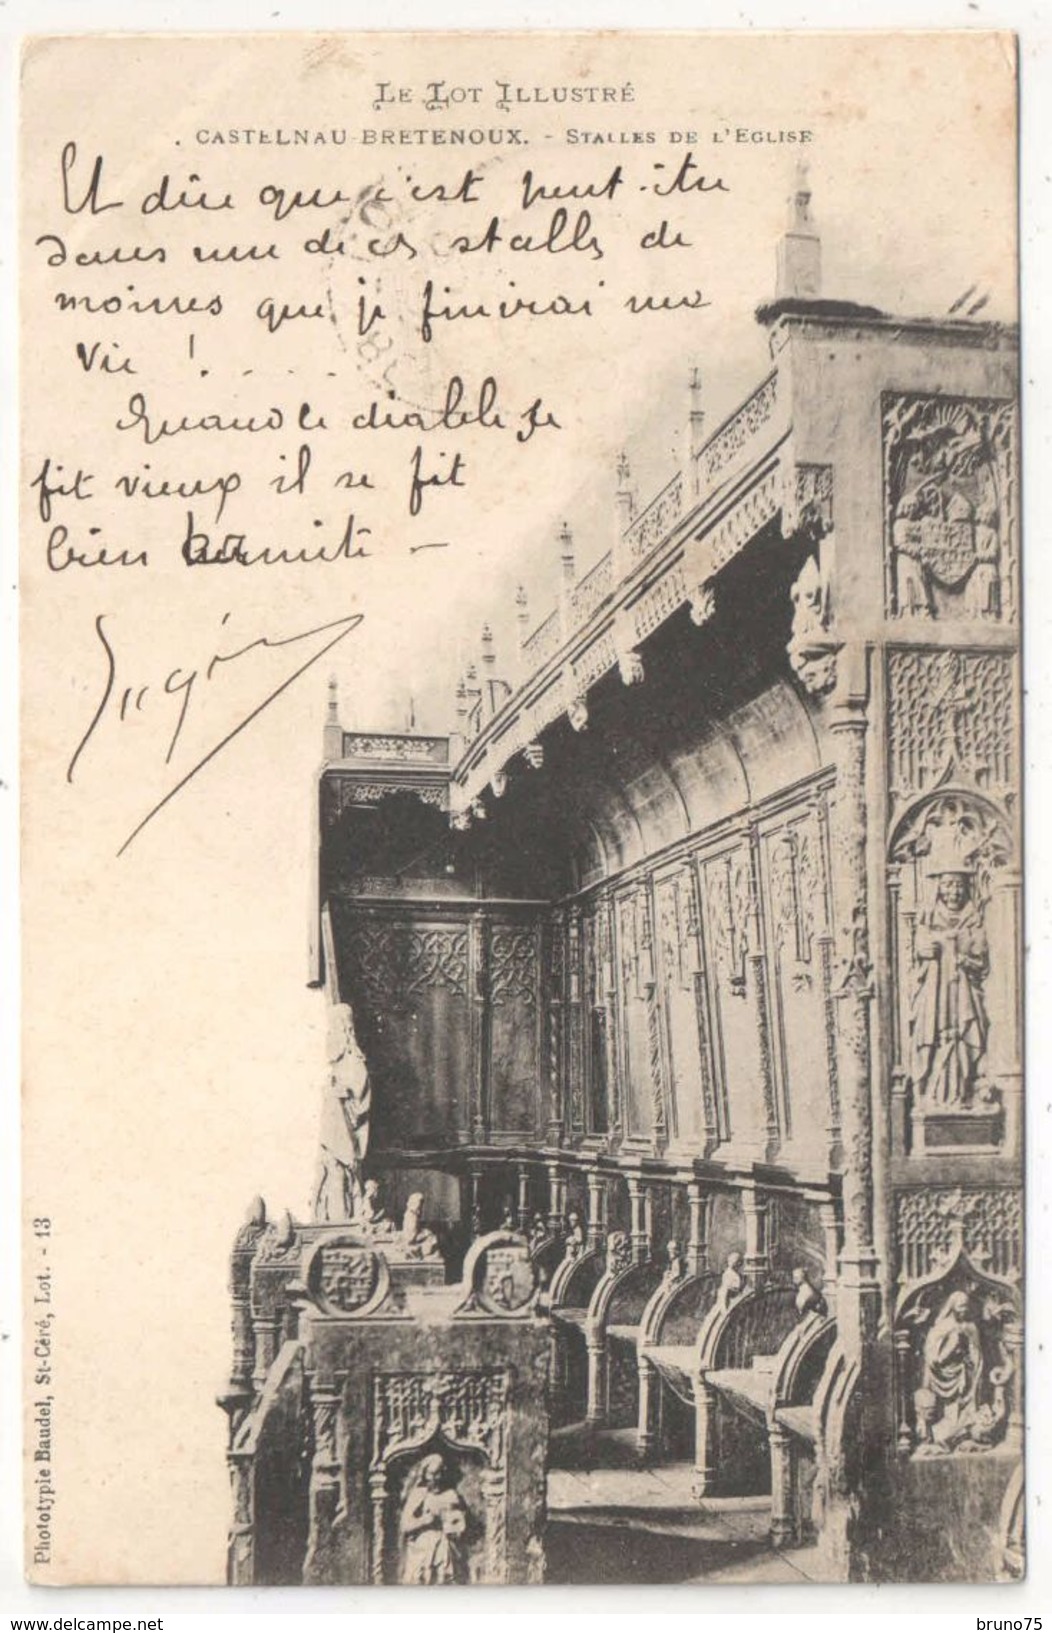 LE LOT ILLUSTRÉ
. CASTELNAU-BRETENOUX. - STALLES DE L'EGLISE
Et dire que c'est peut-être
dans une de ces stalles de
moines que je finirai ma
vie !. . . . .
Quand le diable se
fit vieux il se fit
bien hermite —
Phototypie Baudel, St-Céré, Lot. - 13
http://www.delcampe.net
bruno75